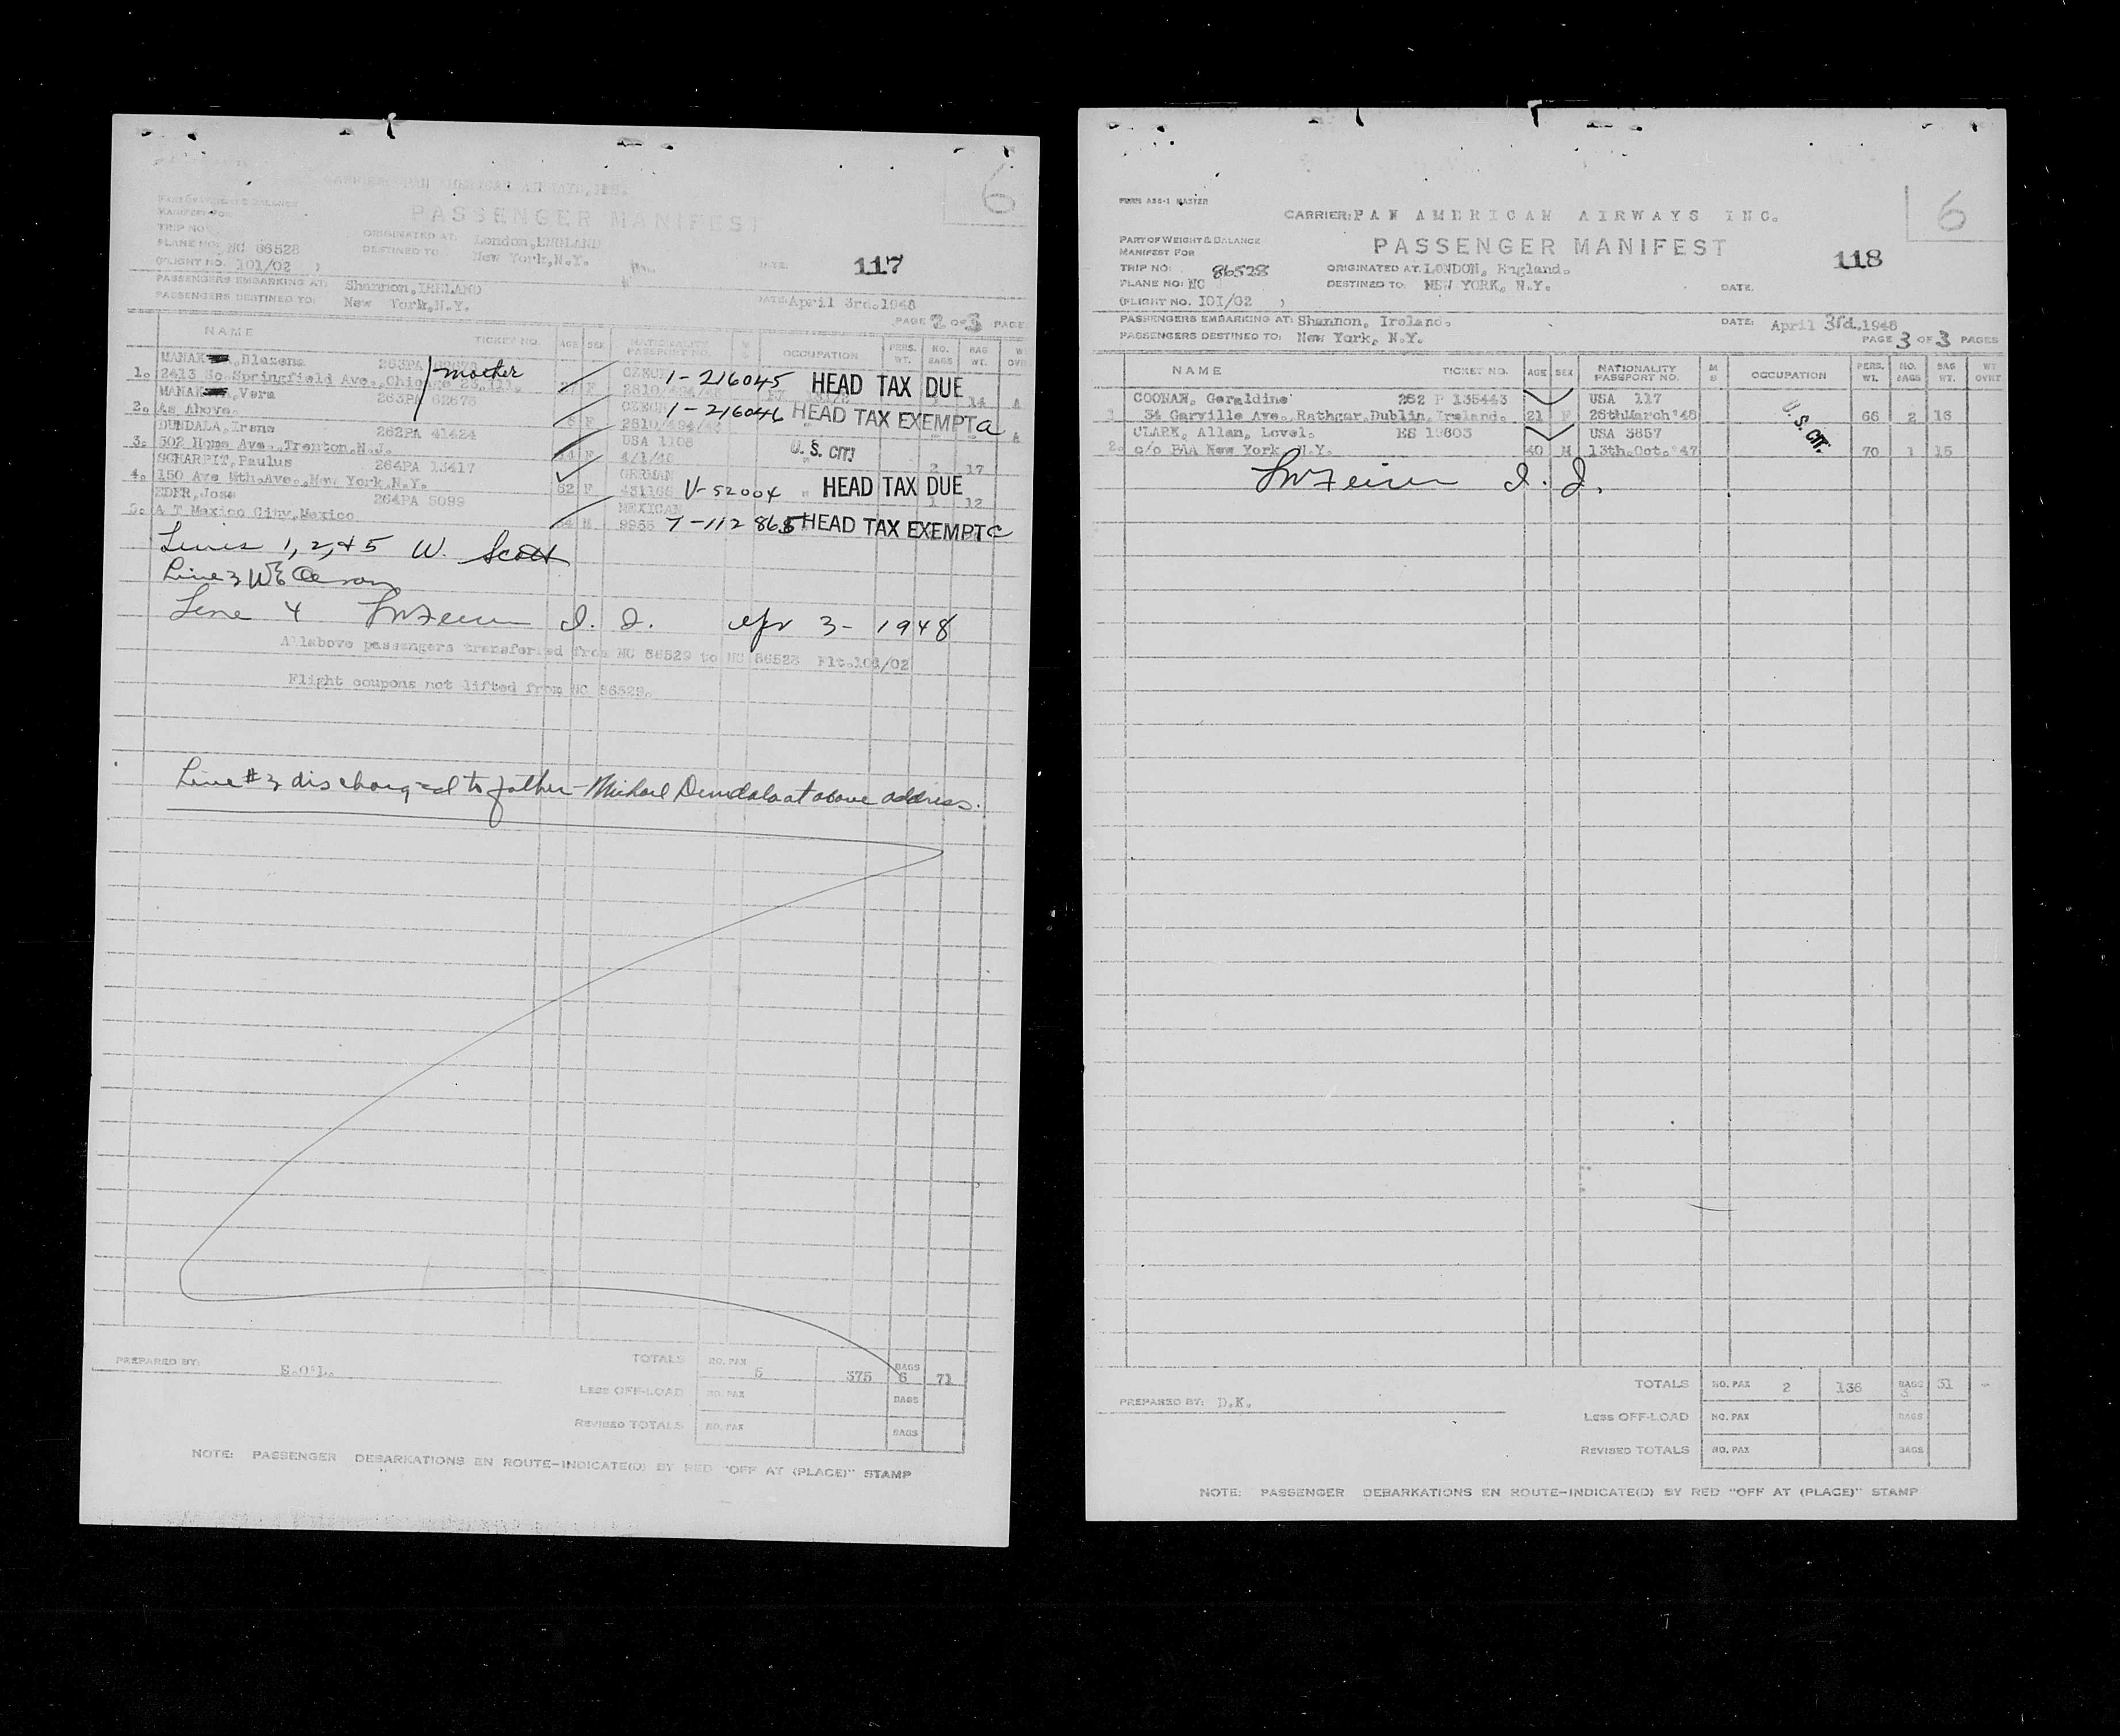 CARRIER: PAN AMERICAN AIRWAYS, INC.
6
PART OF WEIGHT & BALANCE
MANIFEST FOR
PASSENGER MANIFEST
TRIP NO:
PLANE NO: NC 86528
(FLIGHT NO. 101/02 )
ORIGINATED AT: London, ENGLAND
DESTINED TO: New York, N.Y.
DATE:
117
PASSENGERS EMBARKING AT: Shannon, IRELAND
PASSENGERS DESTINED TO: New York, N.Y.
DATE: April 3rd. 1948
PAGE 2 OF 3 PAGE
NAME TICKET NO. AGE SEX NATIONALITY PASSPORT NO. M S OCCUPATION PERS. WT. NO. BAGS BAG WT. W OVR
MANAK , Blazena 263PA mother CZECH 1-216045 HEAD TAX DUE
1. 2413 So. Springfield Ave., Chicago 23, Ill. F 2810/494/48 14
MANAK , Vera 263PA 62676 CZECH 1-216046 HEAD TAX EXEMPT a
2. As Above. F 2810/494/48
DUNDALA, Irene 262PA 41424 USA 1108 U.S. CIT.
3. 502 Home Ave., Trenton, N.J. F 4/1/48 2 17
SCHARPIT, Paulus 264PA 13417 GERMAN V-52004 HEAD TAX DUE
4. 150 Ave Mth. Ave., New York, N.Y. 62 F 451165 1 12
EDER, Jose 264PA 5099 MEXICAN
5. A T Mexico City, Mexico M 9955 T-112865 HEAD TAX EXEMPT c
Lines 1, 2, & 5 W. Scott
Line 3 WE
Line 4 I. I. Apr 3- 1948
All above passengers transferred from NC 86529 to NC 86528 Flt. 101/02
Flight coupons not lifted from NC 86529.
Line #3 discharged to father - Michael Dundala at above address.
PREPARED BY: E.O'L.
TOTALS NO. PAX 5 375 BAGS 6 71
LESS OFF-LOAD NO. PAX BAGS
REVISED TOTALS NO. PAX BAGS
NOTE: PASSENGER DEBARKATIONS EN ROUTE-INDICATE(D) BY RED "OFF AT (PLACE)" STAMP
FORM A34-1 MASTER
CARRIER: PAN AMERICAN AIRWAYS INC.
6
PART OF WEIGHT & BALANCE
MANIFEST FOR
PASSENGER MANIFEST
118
TRIP NO: 86528
PLANE NO: NC
(FLIGHT NO. 101/02 )
ORIGINATED AT. LONDON, England.
DESTINED TO: NEW YORK, N.Y.
DATE.
PASSENGERS EMBARKING AT: Shannon, Ireland.
PASSENGERS DESTINED TO: New York, N.Y.
DATE: April 3rd., 1948
PAGE 3 OF 3 PAGES
NAME TICKET NO. AGE SEX NATIONALITY PASSPORT NO. M S OCCUPATION PERS. WT. NO. BAGS BAG WT. WT OVRT
COONAN, Geraldine 262 P 135443 USA 117
1 34 Garville Ave., Rathgar, Dublin, Ireland. 21 F 26thMarch'48 U.S. CIT. 66 2 16
CLARK, Allan, Lovel. ES 19803 USA 3857
2. c/o PAA New York, N.Y. 40 M 13th.Oct.'47 70 1 15
I. I.
PREPARED BY: D.K.
TOTALS NO. PAX 2 136 BAGS 3 31
LESS OFF-LOAD NO. PAX BAGS
REVISED TOTALS NO. PAX BAGS
NOTE: PASSENGER DEBARKATIONS EN ROUTE-INDICATE(D) BY RED "OFF AT (PLACE)" STAMP